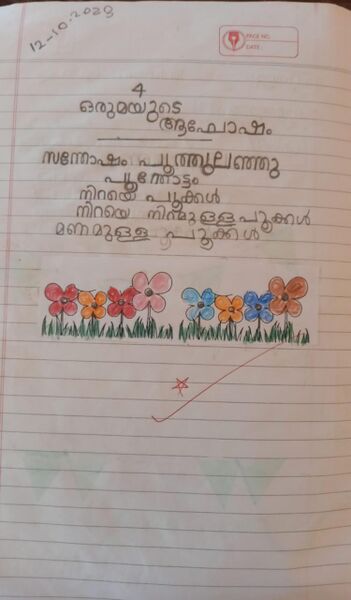 12-10-2023
PAGE NO.
DATE :
4
ഒരുമയുടെ
ആഘോഷം
സന്തോഷം പൂത്തുലഞ്ഞു
പൂന്തോട്ടം
നിറയെ പൂക്കൾ
നിറയെ നിറമുള്ള പൂക്കൾ
മണമുള്ള പൂക്കൾ